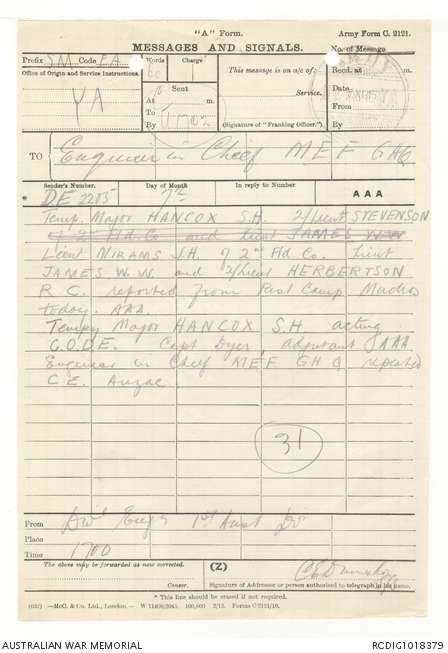 "A" Form. Army Form C. 2121.
MESSAGES AND SIGNALS. No. of Message
Prefix SM Code FA Words Charge This message is on a/c of Recd. at m.
Office of Origin and Service Instructions. 60 Date
YA Sent Service. From
At m.
To
By 1702 (Signature of "Franking Officer.") By
TO Engineer in Chief MEF GHQ
Sender's Number. Day of Month In reply to Number AAA
* DE 2285 7th
Temp. Major HANCOX S.H. 2/Lieut STEVENSON
of 2nd Fld. Co and Lieut JAMES
Lieut NIRAMS J.H. of 2nd Fld Co. Lieut
JAMES W. W. and 2/Lieut HERBERTSON
R C. reported from Rest Camp Mudros
today. AAA.
Tempy Major HANCOX S.H acting
C.O.D.E. Capt Dyer, adjutant AAA
Engineer in Chief MEF GHQ repeated
C E. Anzac.
31
From Divl Engrs 1st Aust Div
Place
Time 1700
The above may be forwarded as now corrected. (Z)
Censor. Signature of Addressor or person authorised to telegraph in his name.
* This line should be erased if not required.
McC. & Co. Ltd., London.
AUSTRALIAN WAR MEMORIAL RCDIG1018379